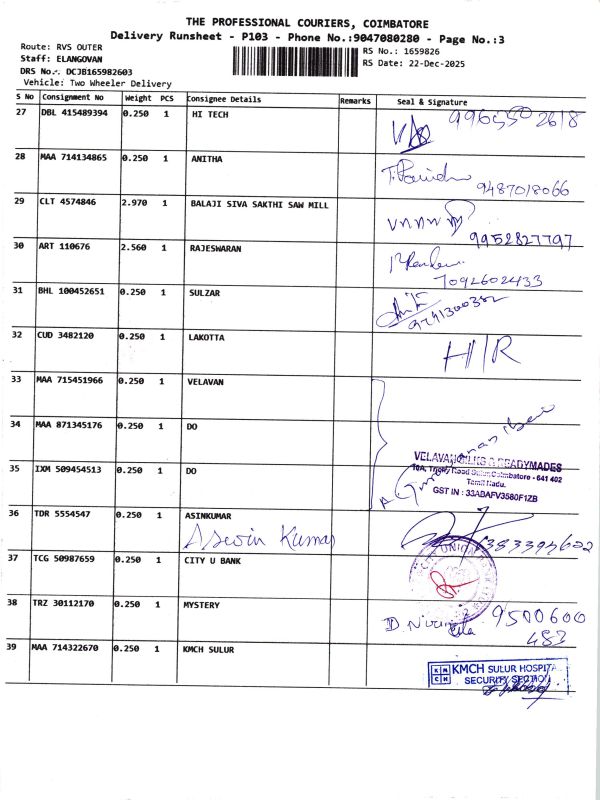 THE PROFESSIONAL COURIERS, COIMBATORE
Delivery Runsheet - P103 - Phone No.:9047080280 - Page No.:3
Route: RVS OUTER
RS No.: 1659826
Staff: ELANGOVAN
RS Date: 22-Dec-2025
DRS No.: DCJB165982603
Vehicle: Two Wheeler Delivery
S No Consignment No Weight PCS Consignee Details Remarks Seal & Signature
27 DBL 415489394 0.250 1 HI TECH
28 MAA 714134865 0.250 1 ANITHA
9487018066
29 CLT 4574846 2.970 1 BALAJI SIVA SAKTHI SAW MILL
9952827797
30 ART 110676 2.560 1 RAJESWARAN
7092602433
31 BHL 100452651 0.250 1 SULZAR
32 CUD 3482120 0.250 1 LAKOTTA
H/R
33 MAA 715451966 0.250 1 VELAVAN
34 MAA 871345176 0.250 1 DO
VELAVAN SILKS & READYMADES
10A, Trichy Road Sulur, Coimbatore - 641 402
35 IXM 509454513 0.250 1 DO
Tamil Nadu.
GST IN : 33ABAFV3580F1ZB
36 TDR 5554547 0.250 1 ASINKUMAR
Aswin Kumar
37 TCG 50987659 0.250 1 CITY U BANK
38 TRZ 30112170 0.250 1 MYSTERY
9500600
483
39 MAA 714322670 0.250 1 KMCH SULUR
KMCH SULUR HOSPITAL
SECURITY SECTION